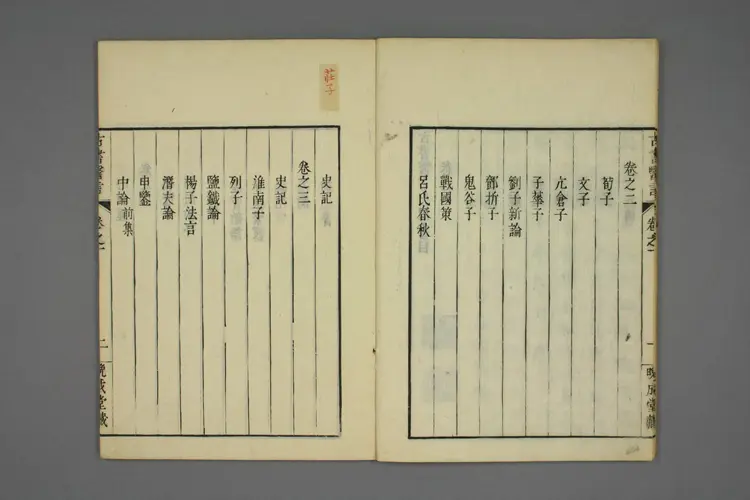 卷之二
荀子
文子
亢倉子
子華子
劉子新論
鄧析子
鬼谷子
戰國策
呂氏春秋
莊子
史記
卷之三
史記
淮南子
列子
鹽鐵論
楊子法言
潛夫論
申鑒
中論前集
卷之一
二
晩成堂藏
卷之一
一
晩成堂藏